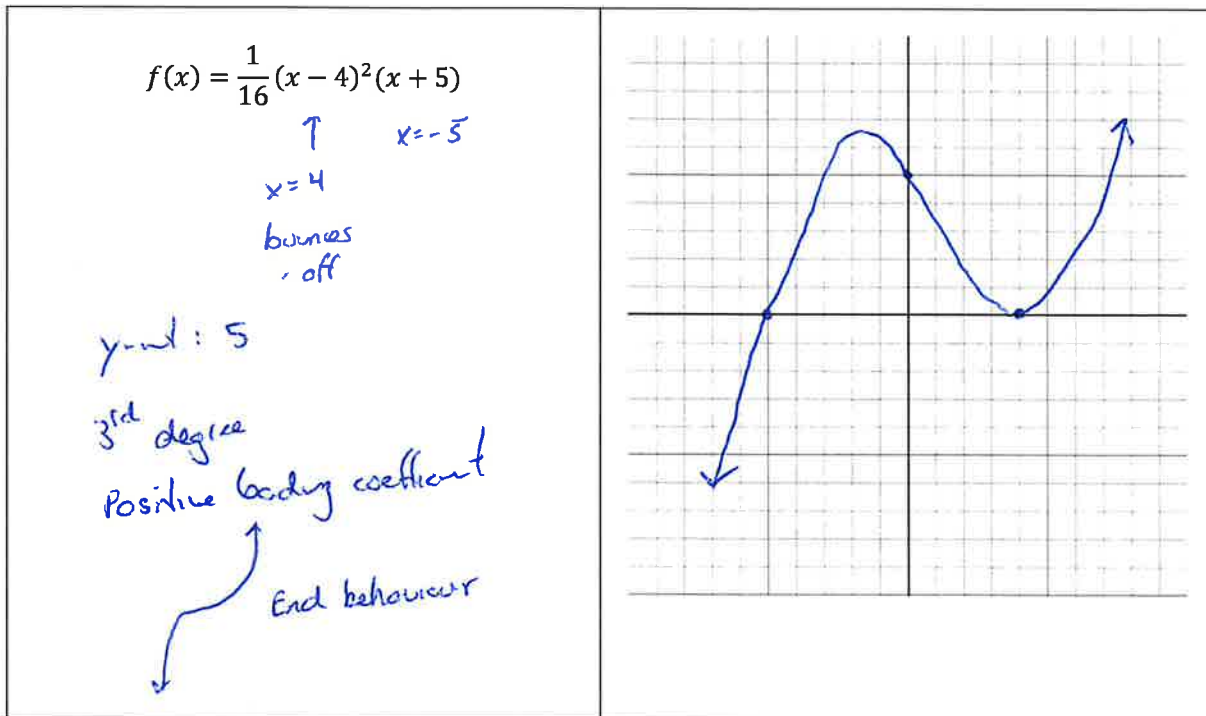 f(x) = \frac{1}{16}(x − 4)^2(x + 5)
↑ x = -5
x = 4
bounces
off
y-int : 5
3rd degree
Positive leading coefficient
End behaviour